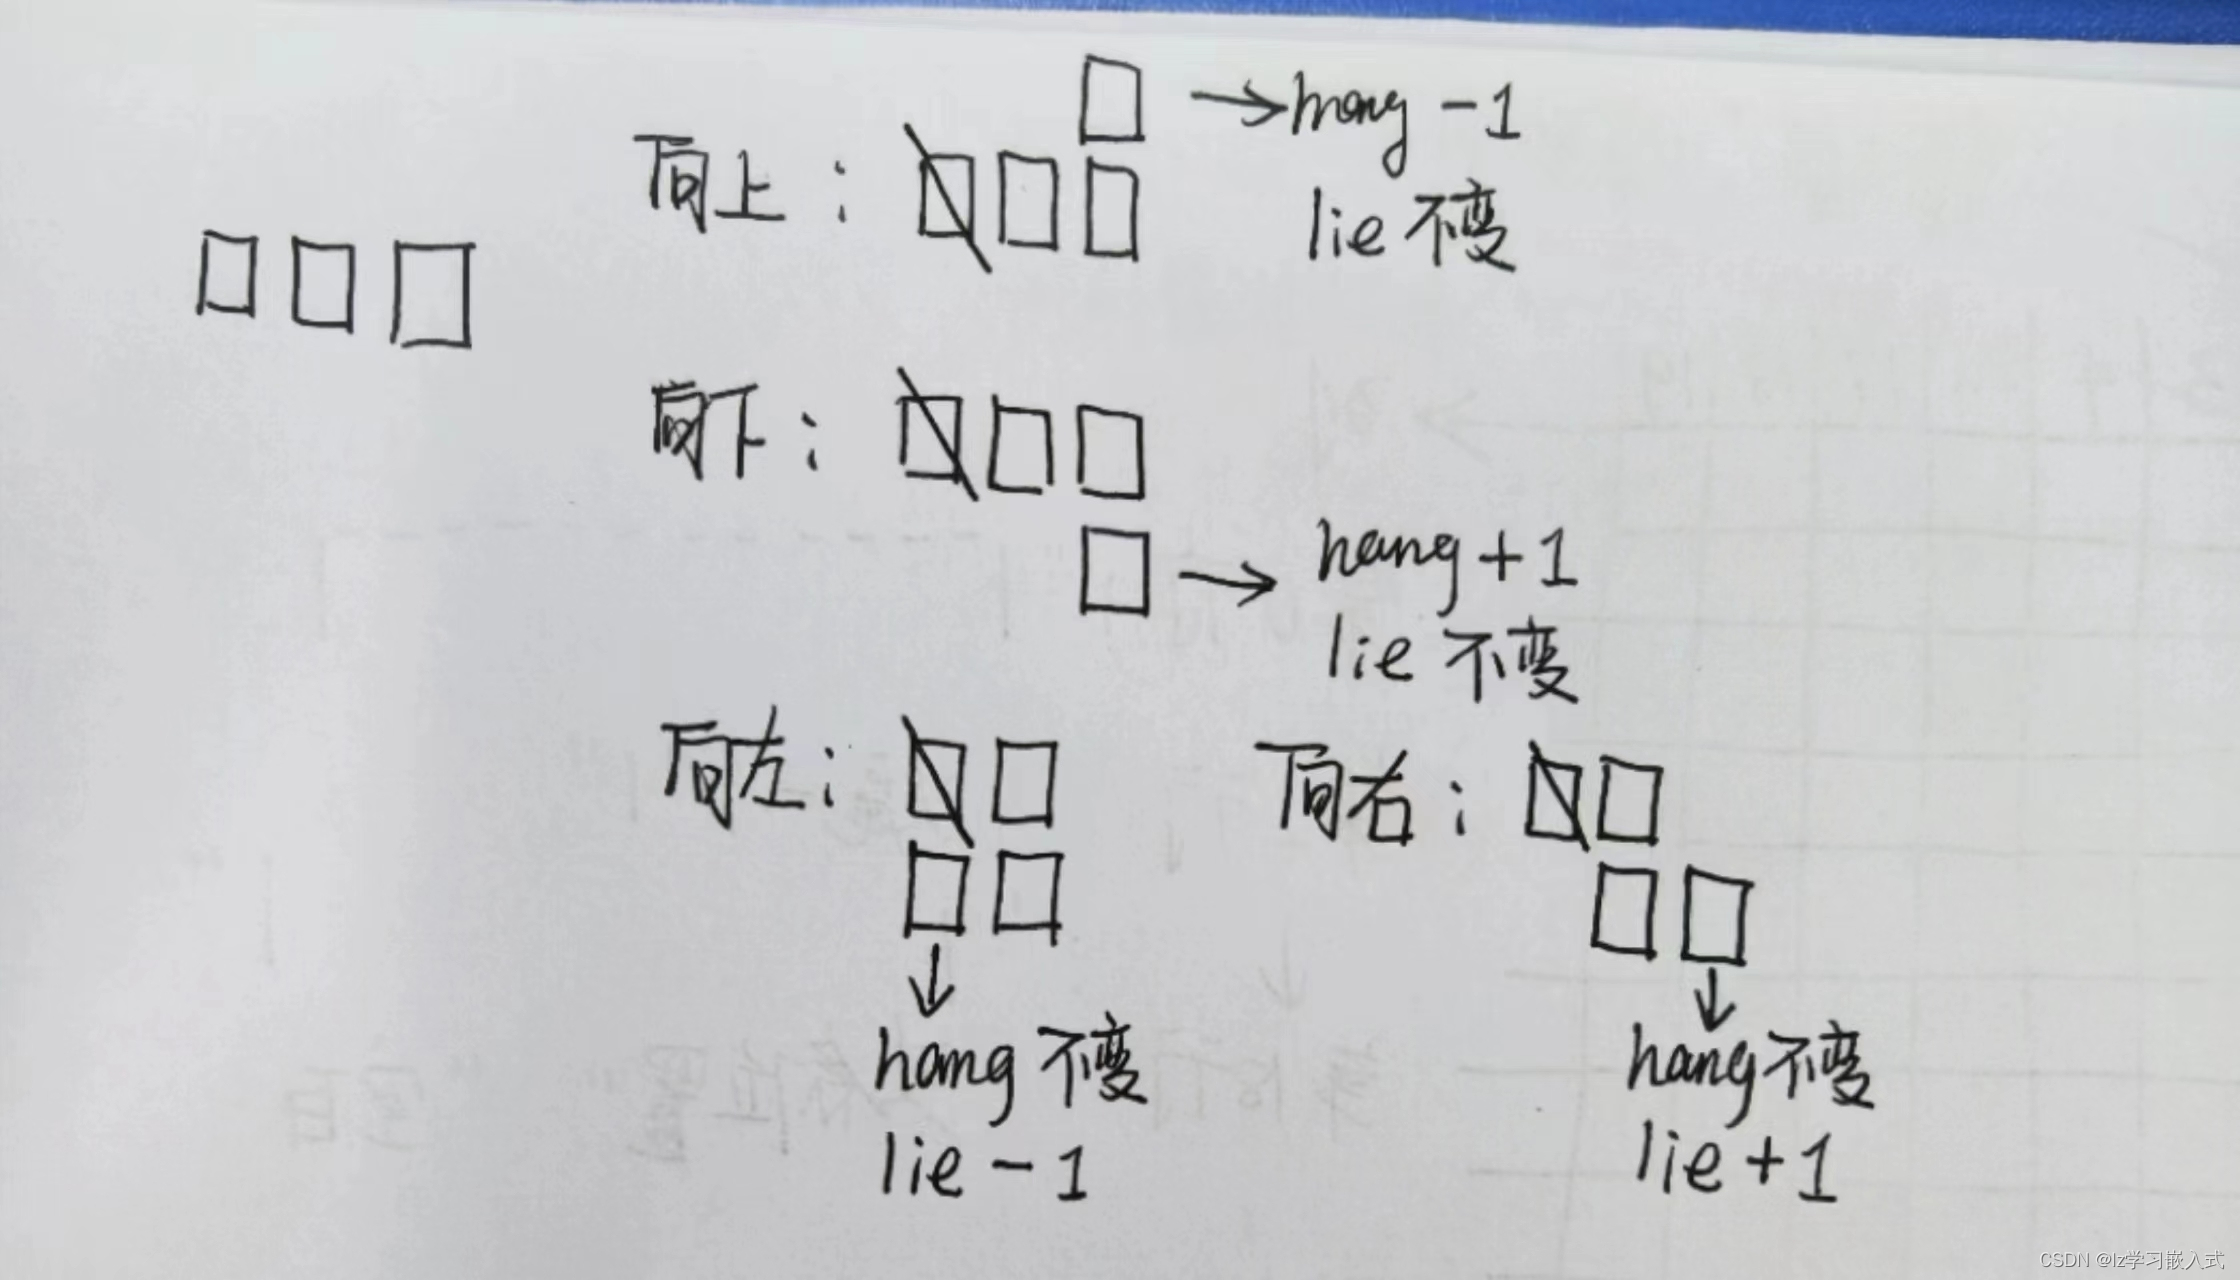 向上：
hang -1
lie 不变
向下：
hang +1
lie 不变
向左：
hang 不变
lie -1
向右：
hang 不变
lie +1
CSDN @lz学习嵌入式